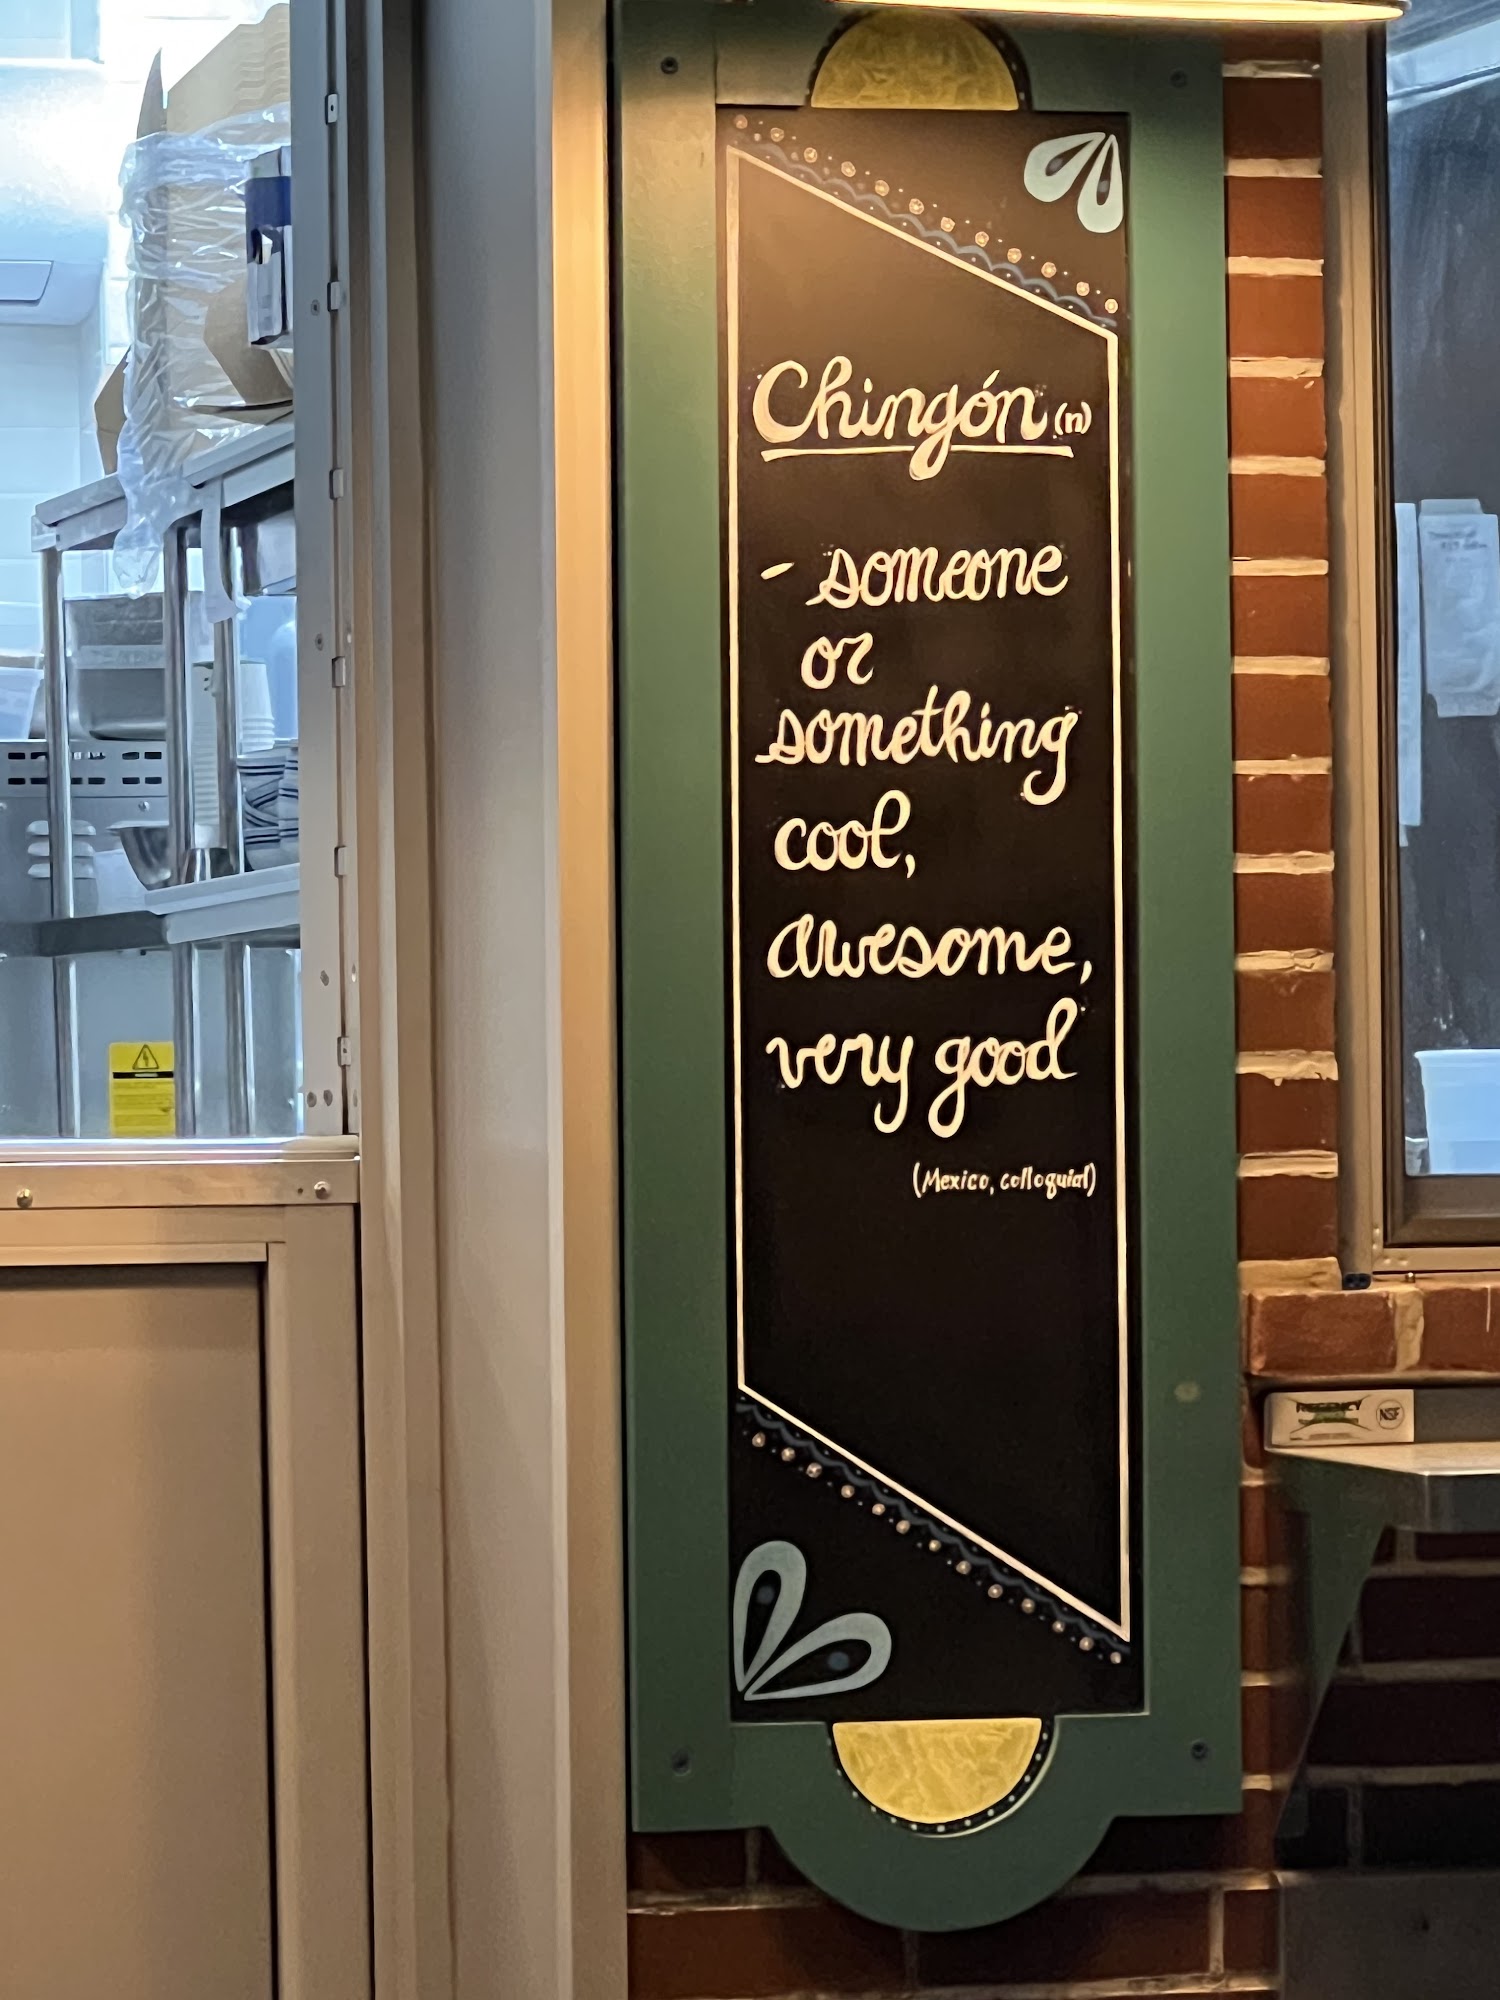 Chingón (n)
- someone
or
something
cool,
awesome,
very good
(Mexico, colloquial)
REGENCY
NSF